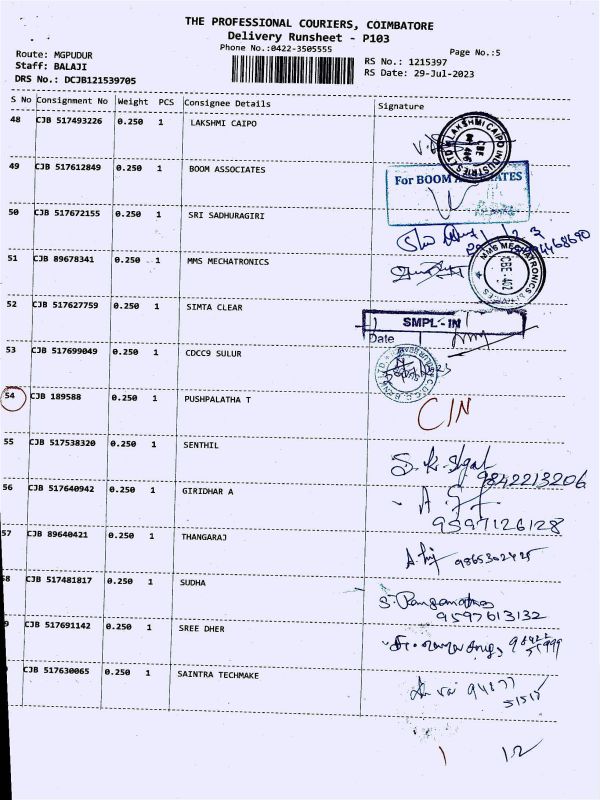 THE PROFESSIONAL COURIERS, COIMBATORE
Delivery Runsheet - P103
Phone No.:0422-3505555
Page No.:5
Route: MGPUDUR
Staff: BALAJI
DRS No.: DCJB121539705
RS No.: 1215397
RS Date: 29-Jul-2023
S No Consignment No Weight PCS Consignee Details Signature
48 CJB 517493226 0.250 1 LAKSHMI CAIPO
LAKSHMI CAIPO INDUSTRIES LTD
CBE
49 CJB 517612849 0.250 1 BOOM ASSOCIATES
For BOOM ASSOCIATES
50 CJB 517672155 0.250 1 SRI SADHURAGIRI
51 CJB 89678341 0.250 1 MMS MECHATRONICS
MMS MECHATRONICS
52 CJB 517627759 0.250 1 SIMTA CLEAR
SMPL - IN
Date
53 CJB 517699049 0.250 1 CDCC9 SULUR
54 CJB 189588 0.250 1 PUSHPALATHA T
C/N
55 CJB 517538320 0.250 1 SENTHIL
9842213206
56 CJB 517640942 0.250 1 GIRIDHAR A
9597126128
57 CJB 89640421 0.250 1 THANGARAJ
9865302425
58 CJB 517481817 0.250 1 SUDHA
9597613132
9 CJB 517691142 0.250 1 SREE DHER
CJB 517630065 0.250 1 SAINTRA TECHMAKE
94877
51517
1 12